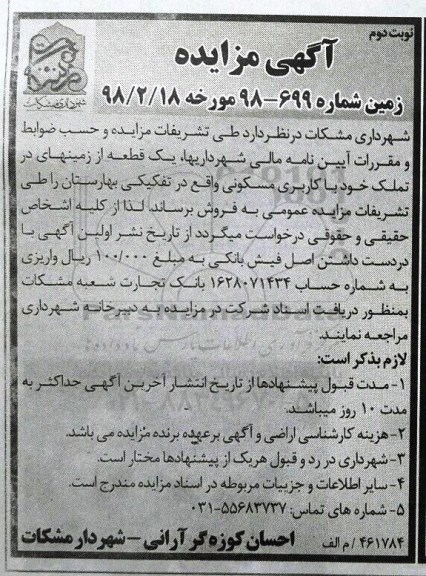 نوبت دوم
شهرداری مشکات
آگهی مزایده
زمین شماره ۶۹۹-۹۸ مورخه ۹۸/۲/۱۸
شهرداری مشکات درنظردارد طی تشریفات مزایده و حسب ضوابط
و مقررات آیین نامه مالی شهرداریها، یک قطعه از زمینهای در
تملک خود با کاربری مسکونی واقع در تفکیکی بهارستان را طی
تشریفات مزایده عمومی به فروش برساند. لذا از کلیه اشخاص
حقیقی و حقوقی درخواست میگردد از تاریخ نشر اولین آگهی با
دردست داشتن اصل فیش بانکی به مبلغ ۱۰۰/۰۰۰ ریال واریزی
به شماره حساب ۱۶۲۸۰۷۱۴۳۴ بانک تجارت شعبه مشکات
بمنظور دریافت اسناد شرکت در مزایده به دبیرخانه شهرداری
مراجعه نمایند.
لازم بذکر است:
۱- مدت قبول پیشنهادها از تاریخ انتشار آخرین آگهی حداکثر به
مدت ۱۰ روز میباشد.
۲- هزینه کارشناسی اراضی و آگهی برعهده برنده مزایده می باشد.
۳- شهرداری در رد و قبول هریک از پیشنهادها مختار است.
۴- سایر اطلاعات و جزییات مربوطه در اسناد مزایده مندرج است.
۵- شماره های تماس: ۵۵۶۸۳۷۳۷-۰۳۱
۴۶۱۷۸۴ / م الف احسان کوزه گر آرانی - شهردار مشکات